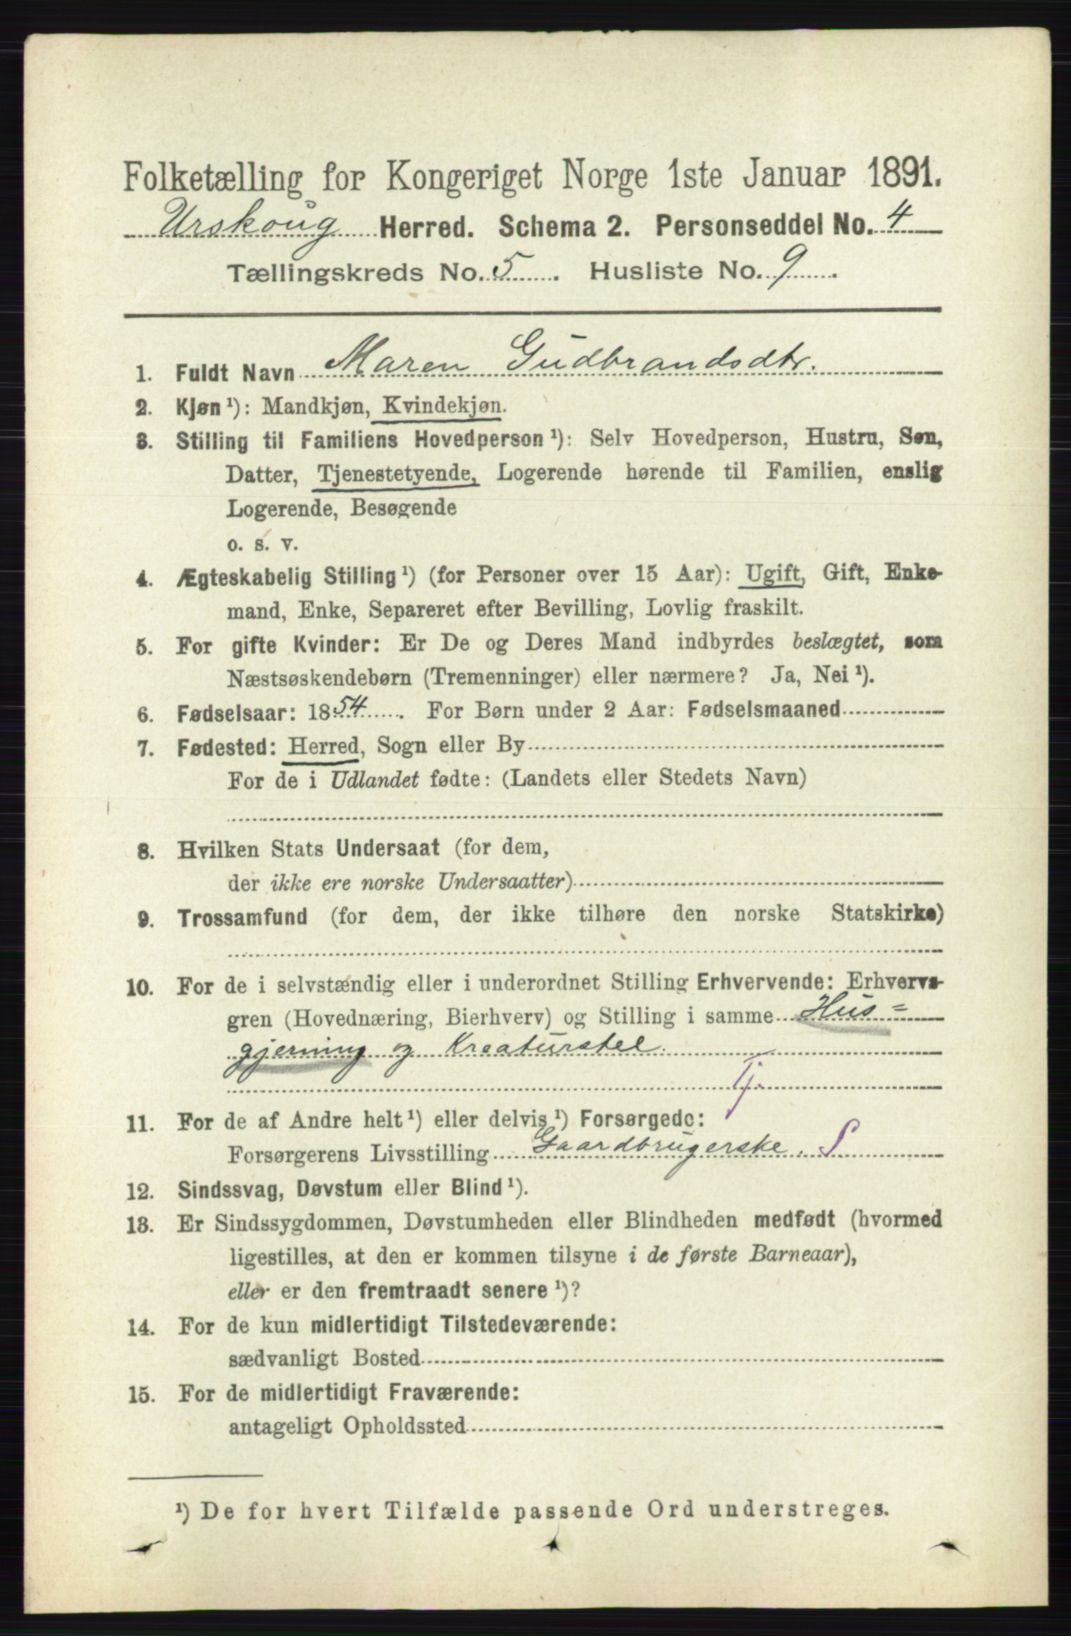 Folketælling for Kongeriget Norge 1ste Januar 1891.
Urskoug Herred. Schema 2. Personseddel No. 4
Tællingskreds No. 5. Husliste No. 9.
1. Fuldt Navn Maren Gudbrandsdtr.
2. Kjøn ¹): Mandkjøn, Kvindekjøn.
3. Stilling til Familiens Hovedperson ¹): Selv Hovedperson, Hustru, Søn,
Datter, Tjenestetyende, Logerende hørende til Familien, enslig
Logerende, Besøgende
o. s. v.
4. Ægteskabelig Stilling ¹) (for Personer over 15 Aar): Ugift, Gift, Enke-
mand, Enke, Separeret efter Bevilling, Lovlig fraskilt.
5. For gifte Kvinder: Er De og Deres Mand indbyrdes beslægtet, som
Næstsøskendebørn (Tremenninger) eller nærmere? Ja, Nei ¹).
6. Fødselsaar: 1854. For Børn under 2 Aar: Fødselsmaaned
7. Fødested: Herred, Sogn eller By
For de i Udlandet fødte: (Landets eller Stedets Navn)
8. Hvilken Stats Undersaat (for dem,
der ikke ere norske Undersaatter)
9. Trossamfund (for dem, der ikke tilhøre den norske Statskirke)
10. For de i selvstændig eller i underordnet Stilling Erhvervende: Erhvervs-
gren (Hovednæring, Bierhverv) og Stilling i samme Hus=
gjerning og Kreaturstel.
Tj.
11. For de af Andre helt ¹) eller delvis ¹) Forsørgede:
Forsørgerens Livsstilling Gaardbrugerske. S
12. Sindssvag, Døvstum eller Blind ¹).
13. Er Sindssygdommen, Døvstumheden eller Blindheden medfødt (hvormed
ligestilles, at den er kommen tilsyne i de første Barneaar),
eller er den fremtraadt senere ¹)?
14. For de kun midlertidigt Tilstedeværende:
sædvanligt Bosted
15. For de midlertidigt Fraværende:
antageligt Opholdssted
¹) De for hvert Tilfælde passende Ord understreges.